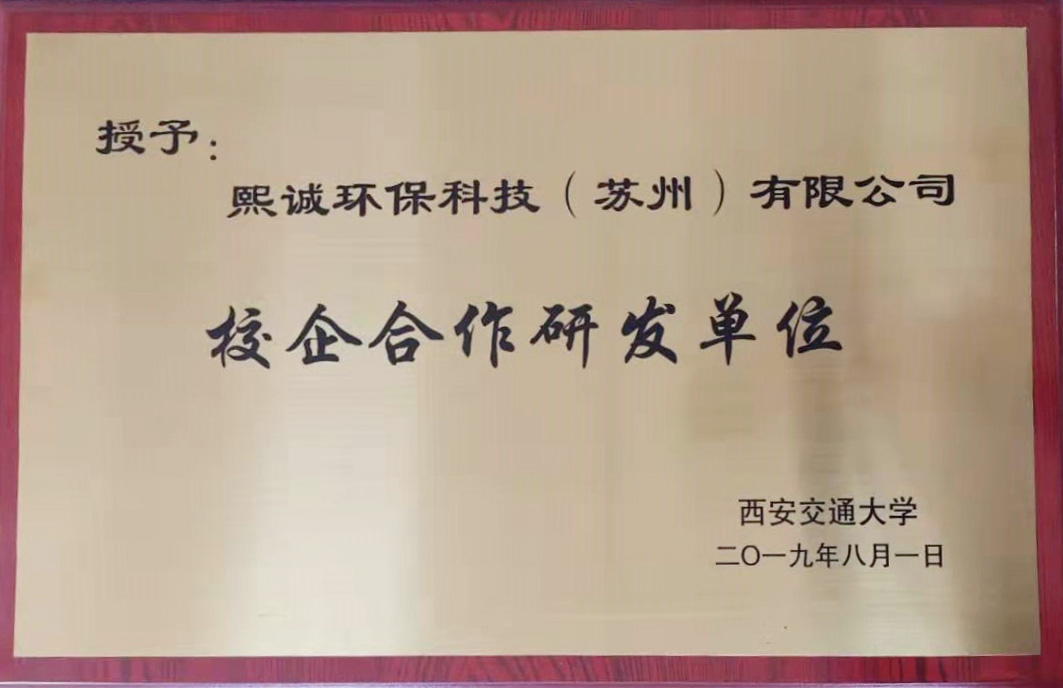 授予：
熙诚环保科技（苏州）有限公司
校企合作研发单位
西安交通大学
二〇一九年八月一日